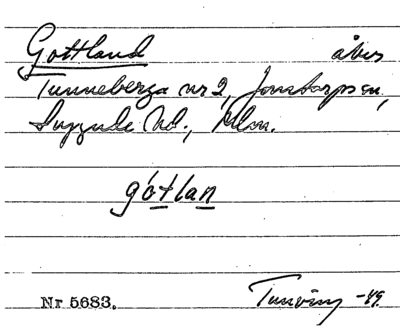 Gottland åbs
Tunneberga nr 2, Jonstorps sn,
Luggude hd., Mlm.
gòtlan
Nr 5683. Tuneving -49